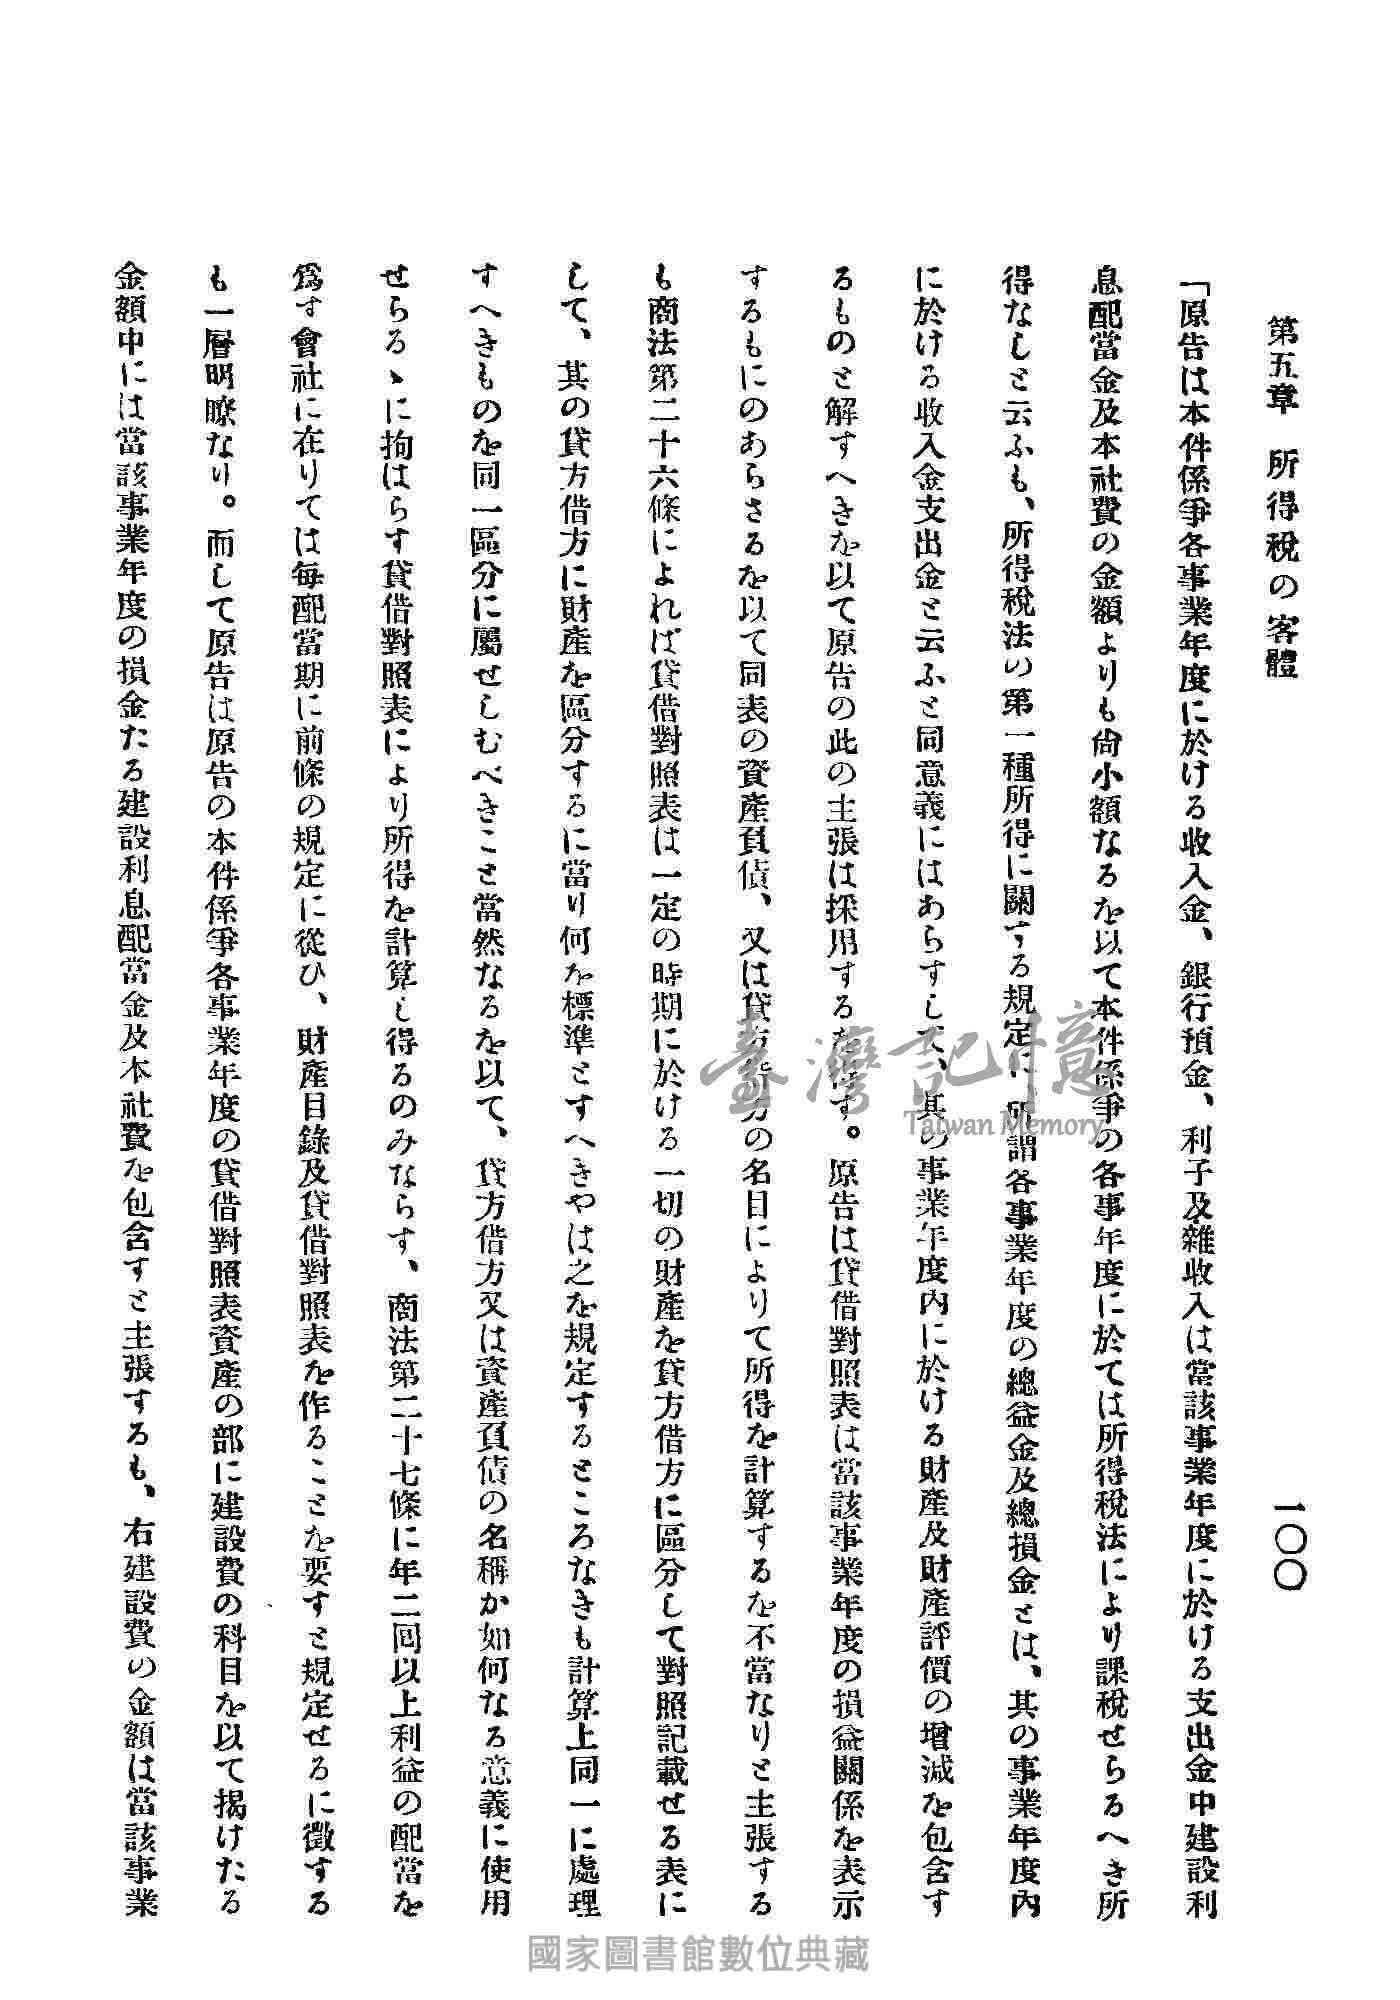 第五章　所得稅の客體
一〇〇
「原告は本件係爭各事業年度に於ける收入金、銀行預金、利子及雜收入は當該事業年度に於ける支出金中建設利
息配當金及本社費の金額よりも尙小額なるを以て本件係爭の各事年度に於ては所得稅法により課稅せらるへき所
得なしと云ふも、所得稅法の第一種所得に關する規定に所謂各事業年度の總益金及總損金とは、其の事業年度內
に於ける收入金支出金と云ふと同意義にはあらすして、其の事業年度內に於ける財產及財產評價の增減を包含す
るものと解すへきを以て原告の此の主張は採用するを得す。原告は貸借對照表は當該事業年度の損益關係を表示
するもにのあらさるを以て同表の資產負債、又は貸方借方の名目によりて所得を計算するを不當なりと主張する
も商法第二十六條によれば貸借對照表は一定の時期に於ける一切の財產を貸方借方に區分して對照記載せる表に
して、其の貸方借方に財產を區分するに當り何を標準とすへきやは之を規定するところなきも計算上同一に處理
すへきものを同一區分に屬せしむべきこと當然なるを以て、貸方借方又は資產負債の名稱か如何なる意義に使用
せらるゝに拘はらす貸借對照表により所得を計算し得るのみならす、商法第二十七條に年二囘以上利益の配當を
爲す會社に在りては每配當期に前條の規定に從ひ、財產目錄及貸借對照表を作ることを要すと規定せるに徵する
も一層明瞭なり。而して原告は原告の本件係爭各事業年度の貸借對照表資產の部に建設費の科目を以て揭けたる
金額中には當該事業年度の損金たる建設利息配當金及本社費を包含すと主張するも、右建設費の金額は當該事業
臺灣記憶
Taiwan Memory
國家圖書館數位典藏